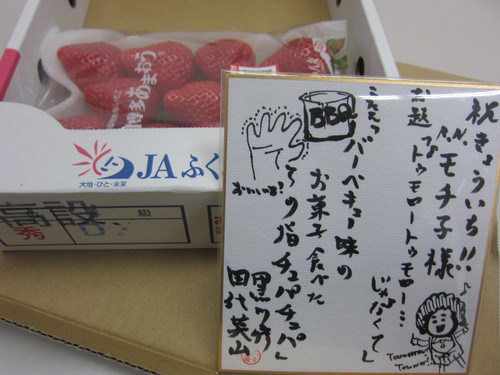 博多あまおう
JAふく
大地・ひと・未来
級
秀
祝きょういち!!
R.N.モチ子様
お題
「トゥモロートゥモロー…
じゃなくて」
こたえ
「バーベキュー味の
お菓子食べた
その指チュパチュパ」
田代英山
BBQ
Tomorrow